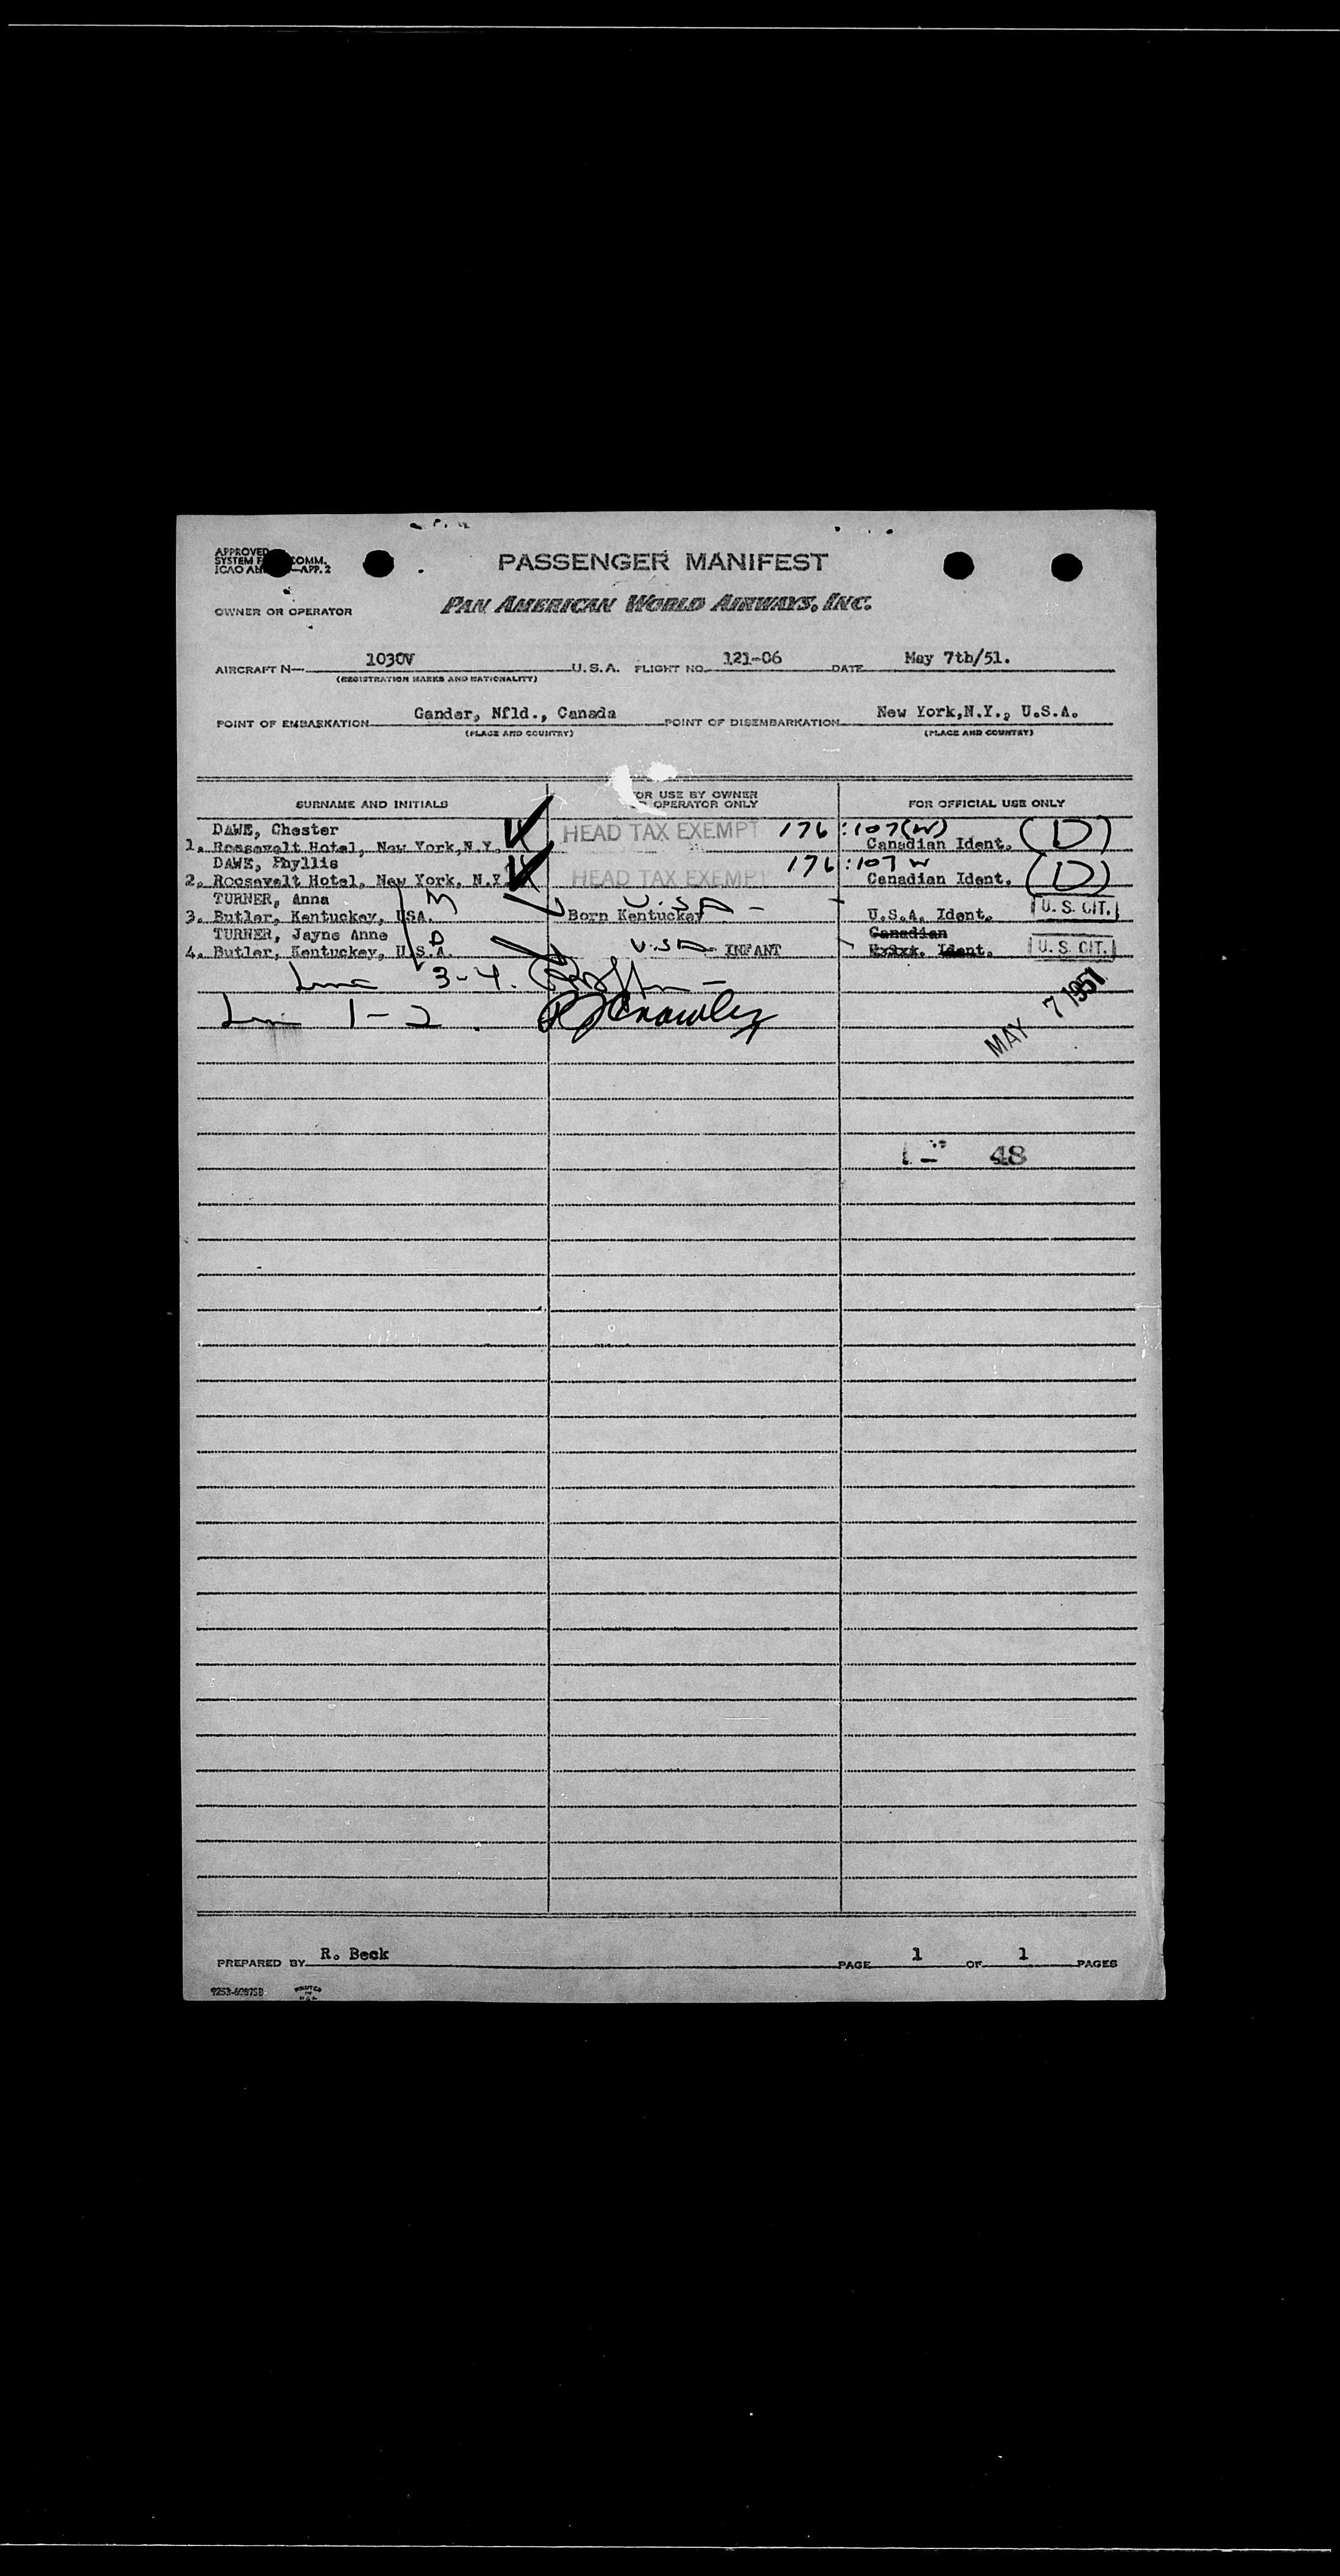 APPROVED
SYSTEM COMM.
ICAO APP. 2
PASSENGER MANIFEST
OWNER OR OPERATOR PAN AMERICAN WORLD AIRWAYS, INC.
AIRCRAFT N— 1030V U.S.A. FLIGHT NO. 121-06 DATE May 7th/51.
(REGISTRATION MARKS AND NATIONALITY)
POINT OF EMBARKATION Gander, Nfld., Canada POINT OF DISEMBARKATION New York,N.Y., U.S.A.
(PLACE AND COUNTRY) (PLACE AND COUNTRY)
SURNAME AND INITIALS FOR USE BY OWNER OPERATOR ONLY FOR OFFICIAL USE ONLY
DAWE, Chester HEAD TAX EXEMPT 176:107(W) (D)
1. Roosevelt Hotel, New York,N.Y. Canadian Ident.
DAWE, Phyllis 176:107 W
2. Roosevelt Hotel, New York, N.Y. HEAD TAX EXEMPT Canadian Ident. (D)
TURNER, Anna M U.S.A - U.S. CIT.
3. Butler, Kentuckey, USA. Born Kentuckey U.S.A. Ident.
TURNER, Jayne Anne D Canadian
4. Butler, Kentuckey, U.S.A. U.S.A. INFANT Ident. U.S. CIT.
3-4.
1-2. MAY 7 1951
48
PREPARED BY R. Beck PAGE 1 OF 1 PAGES